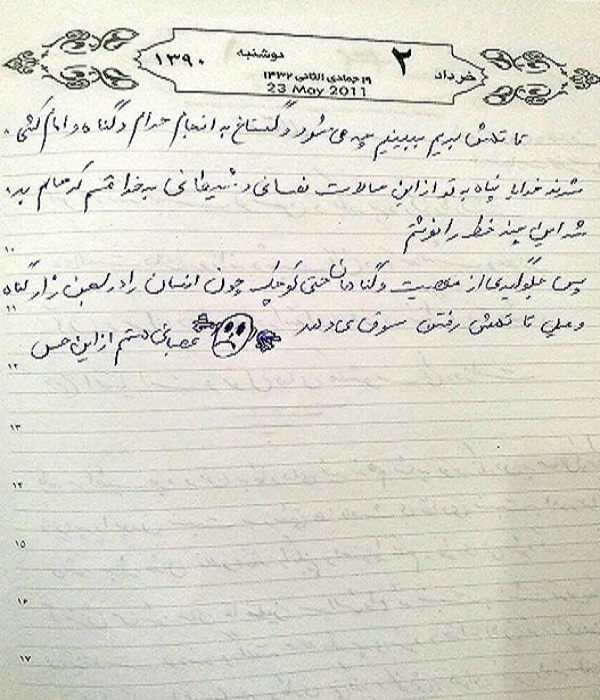 خرداد ۲ دوشنبه ۱۳۹۰
۱۹ جمادی الثانی ۱۴۳۲
23 May 2011
تا تهش بریم ببینیم چه می شود و گستاخ به انجام حرام و گناه و آدم کشی.
شدند خدایا پناه به تو از این حالات نفسانی و شیطانی به خدا قسم که حالم بد
شد این چند خط را نوشتم
۱۰
پس جلوگیری از معصیت و گناهان حتی کوچک چون انسان را در لجن زار گناه
۱۱
و میل تا تهش رفتن سوق می دهد عصبانی هستم از این حس
۱۲
۱۳
۱۴
۱۵
۱۶
۱۷